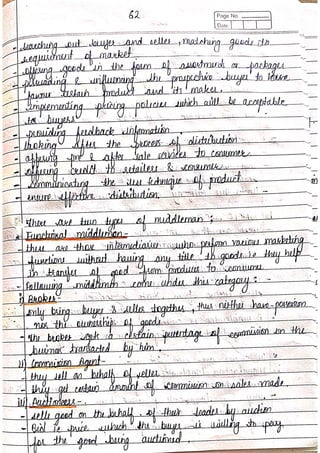 62
Page No.
Date
- searching out buyer and seller, matching goods to
requirement of market
- offering goods in the form of assortment or packages
- persuading & influencing the prospective buyer to
favour certain product and its maker.
- implementing pricing policies which will be acceptable
to buyers
- providing feedback information.
- looking after the process of distribution
- offering pre & after sale services to consumer
- offering credit to retailers & consumer
- communicating the use technique of product
- ensure effective distribution.
There are two types of middleman:
* Functional middleman -
- these are those intermediaries who perform various marketing
functions without having any title to goods. ie they help
in transfer of good from producer to consumer
- following middleman come under this category:-
i) Broker
- only bring buyer & seller together, thus neither have possession
nor the ownership of goods.
- the broker a certain percentage of commission on the
business transacted by him.
ii) Commission Agent -
- they sell on behalf of seller
- they get certain amount of commission on sales made.
iii) Auctioneers -
- sells good on the behalf of their leader by auction
- Bid is price which the buyer is willing to pay
for the good being auctioned.